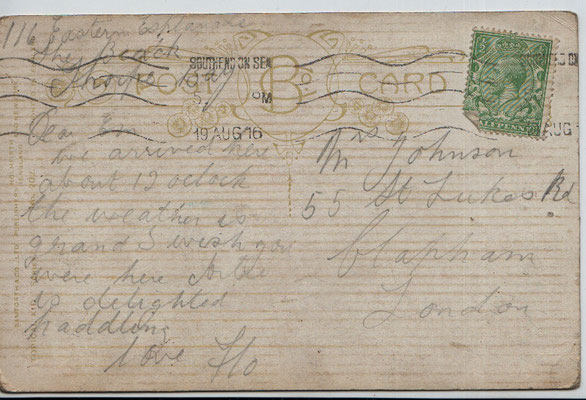 116 Eastern Esplanade
The Beach
Thorpe Bay
POST CARD
SOUTHEND ON SEA
19 AUG 16
AUG
Dear Em
we arrived here
about 12 oclock
the weather is
grand I wish you
were here
is delighted
paddling
love Flo
Mrs Johnson
55 St Lukes Rd
Clapham
London